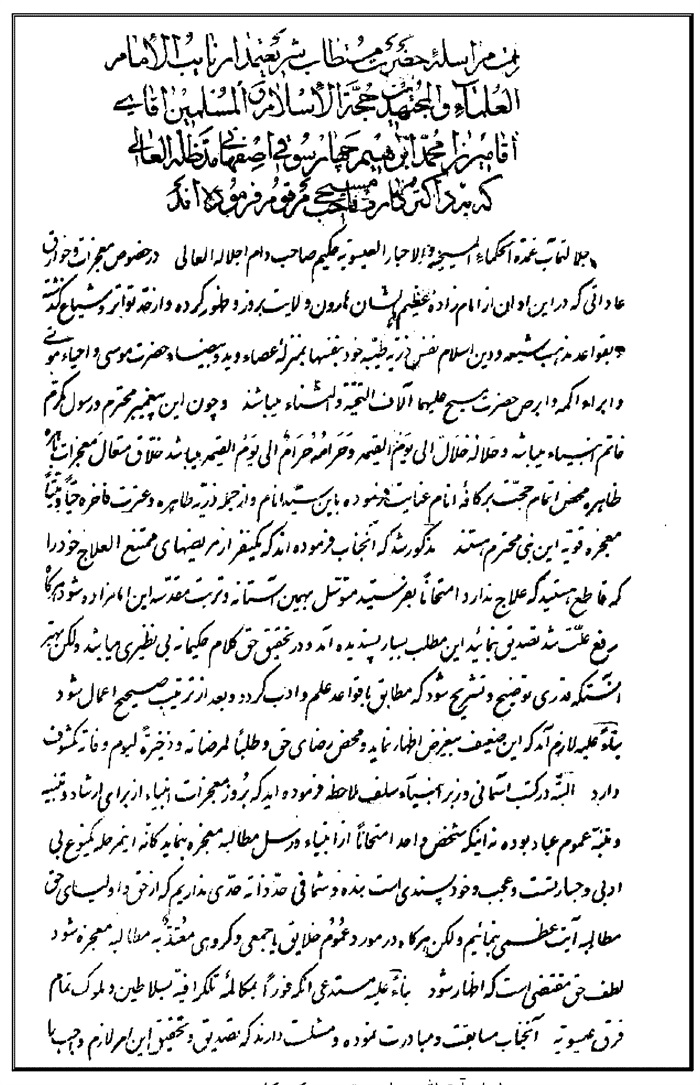 مراسلهٔ حضرت مستطاب شریعتمدار نایب الإمام
العلماء و المجتهدین حجة الأسلام و المسلمین اقای
اقا میرزا محمد ابرهیم چهارسوقی اصفهانی مدظله العالی
که به دکتر کار صاحب مسیحی مرقوم فرموده اند
عمدة الحکماء المسیحیة و الاحبار العیسویة حکیم صاحب دام اجلاله العالی در خصوص معجزات و خوارق
عاداتی که در این اوان از امام زاده عظیم الشان هارون ولایت بروز و ظهور کرده و از حد تواتر و شیاع گذشته
بقواعد مذهب شیعه و دین اسلام نفس ذریه طیبه خود بنفسها بمنزلهٔ عصا و ید و بیضاء حضرت موسی و احیاء موتی
و ابراء اکمه و ابرص حضرت مسیح علیهما آلاف التحیة و الثناء میباشد و چون این پیغمبر محترم و رسول مکرم
خاتم انبیاء میباشد و حلاله حلال الی یوم القیمه و حرامه حرام الی یوم القیمه میباشد خلاق متعال معجزات باهره
ظاهره محض اتمام حجت بر کافهٔ انام عنایت فرموده باین سید انام و از جمله ذریه طاهره و عترت فاخره حیاً و میتاً
معجزه قویه این نبی محترم هستند مذکور شد که آنجناب فرموده اند که یکنفر از مریضهای ممتنع العلاج خود را
که قاطع هستید که علاج ندارد امتحاناً بفرستید متوسل بهمین آستانه و تربت مقدسه این امامزاده شود هرگاه
رفع علت شد تصدیق بنمائید این مطلب بسیار پسندیده آمد و در تحقیق حق کلام حکیمانه بی نظیری میباشد ولکن بهتر
آنستکه قدری توضیح و تشریح شود که مطابق با قواعد علم و ادب گردد و بعد از ترتیب صحیح اعمال شود
بناءً علیه لازم آمد که این ضعیف بیغرض اظهار نماید و محض رضای حق و طلباً لمرضاته و ذخیرةً لیوم وفاته مکشوف
دارد البته در کتب آسمانی و زبر انبیاء سلف ملاحظه فرموده اید که بروز معجزات انبیاء از برای ارشاد و تنبیه
و عموم عباد بوده نه اینکه شخص واحد امتحاناً از انبیاء و رسل مطالبه معجزه بنماید کانه اینمرحله یکنوع بی
ادبی و جسارتست و عجب و خود پسندی است بنده و شما فی حد ذاته حدی نداریم که از حق و اولیای حق
مطالبه آیت عظمی بنمائیم ولکن هرگاه در مورد عموم خلایق یا جمعی و گروهی معتدٌ به مطالبه معجزه شود
لطف حق مقتضی است که اظهار شود بناءً علیه مستدعی آنکه فوراً بمکالمهٔ تلگرافیه بسلاطین و ملوک تمام
فرق عیسویه آنجناب مسابقت و مبادرت نموده و مسئلت دارند که تصدیق و تحقیق این امر لازم و واجب با